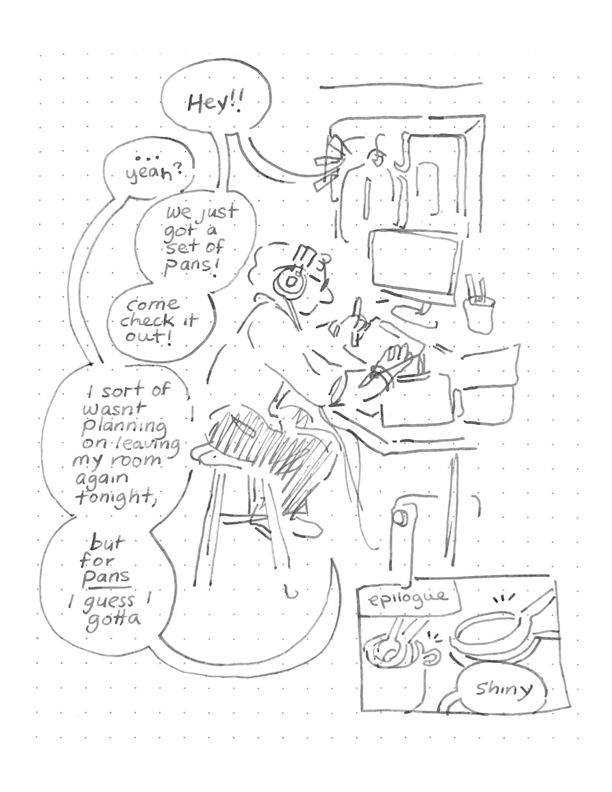 Hey!!
...
yeah?
we just
got a
set of
pans!
come
check it
out!
I sort of
wasnt
planning
on leaving
my room
again
tonight,
but
for
pans
I guess I
gotta
epilogue
shiny